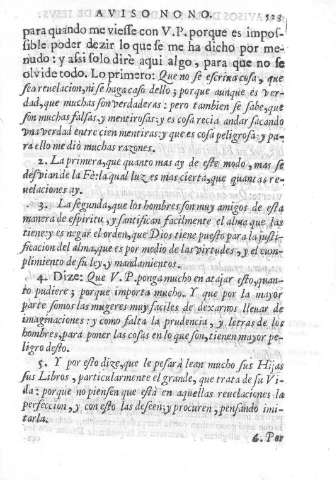 AVISO NONO. 523
para quando me viesse con V.P. porque es impos-
sible poder dezir lo que se me ha dicho por me-
nudo: y asi solo dire aqui algo, para que no se
olvide todo. Lo primero: Que no se escriva cosa, que
sea revelacion, ni se haga caso dello; porque aunque es ver-
dad, que muchas son verdaderas: pero tambien se sabe, que
son muchas falsas, y mentirosas: y es cosa recia andar sacando
vna verdad entre cien mentiras: y que es cosa peligrosa: y pa-
ra ello me diò muchas razones.
2. La primera, que quanto mas ay de este modo, mas se
desvian de la Fè: la qual luz es mas cierta, que quantas re-
velaciones ay.
3. La segunda, que los hombres son muy amigos de esta
manera de espiritu, y santifican facilmente el alma que las
tiene: y es negar el orden, que Dios tiene puesto para la justi-
ficacion del alma, que es por medio de las virtudes, y el cum-
plimiento de su ley, y mandamientos.
4. Dize: Que V.P. ponga mucho en atajar esto, quan-
to pudiere; porque importa mucho. Y que por la mayor
parte somos las mugeres muy faciles de dexarnos llevar de
imaginaciones: y como falta la prudencia, y letras de los
hombres, para poner las cosas en lo que son, tienen mayor pe-
ligro desto.
5. Y por esto dize, que le pesarà lean mucho sus Hijas
sus Libros, particularmente el grande, que trata de su Vi-
da: porque no piensen que està en aquellas revelaciones la
perfeccion, y con esto las desseen, y procuren, pensando imi-
tarla.
6. Por